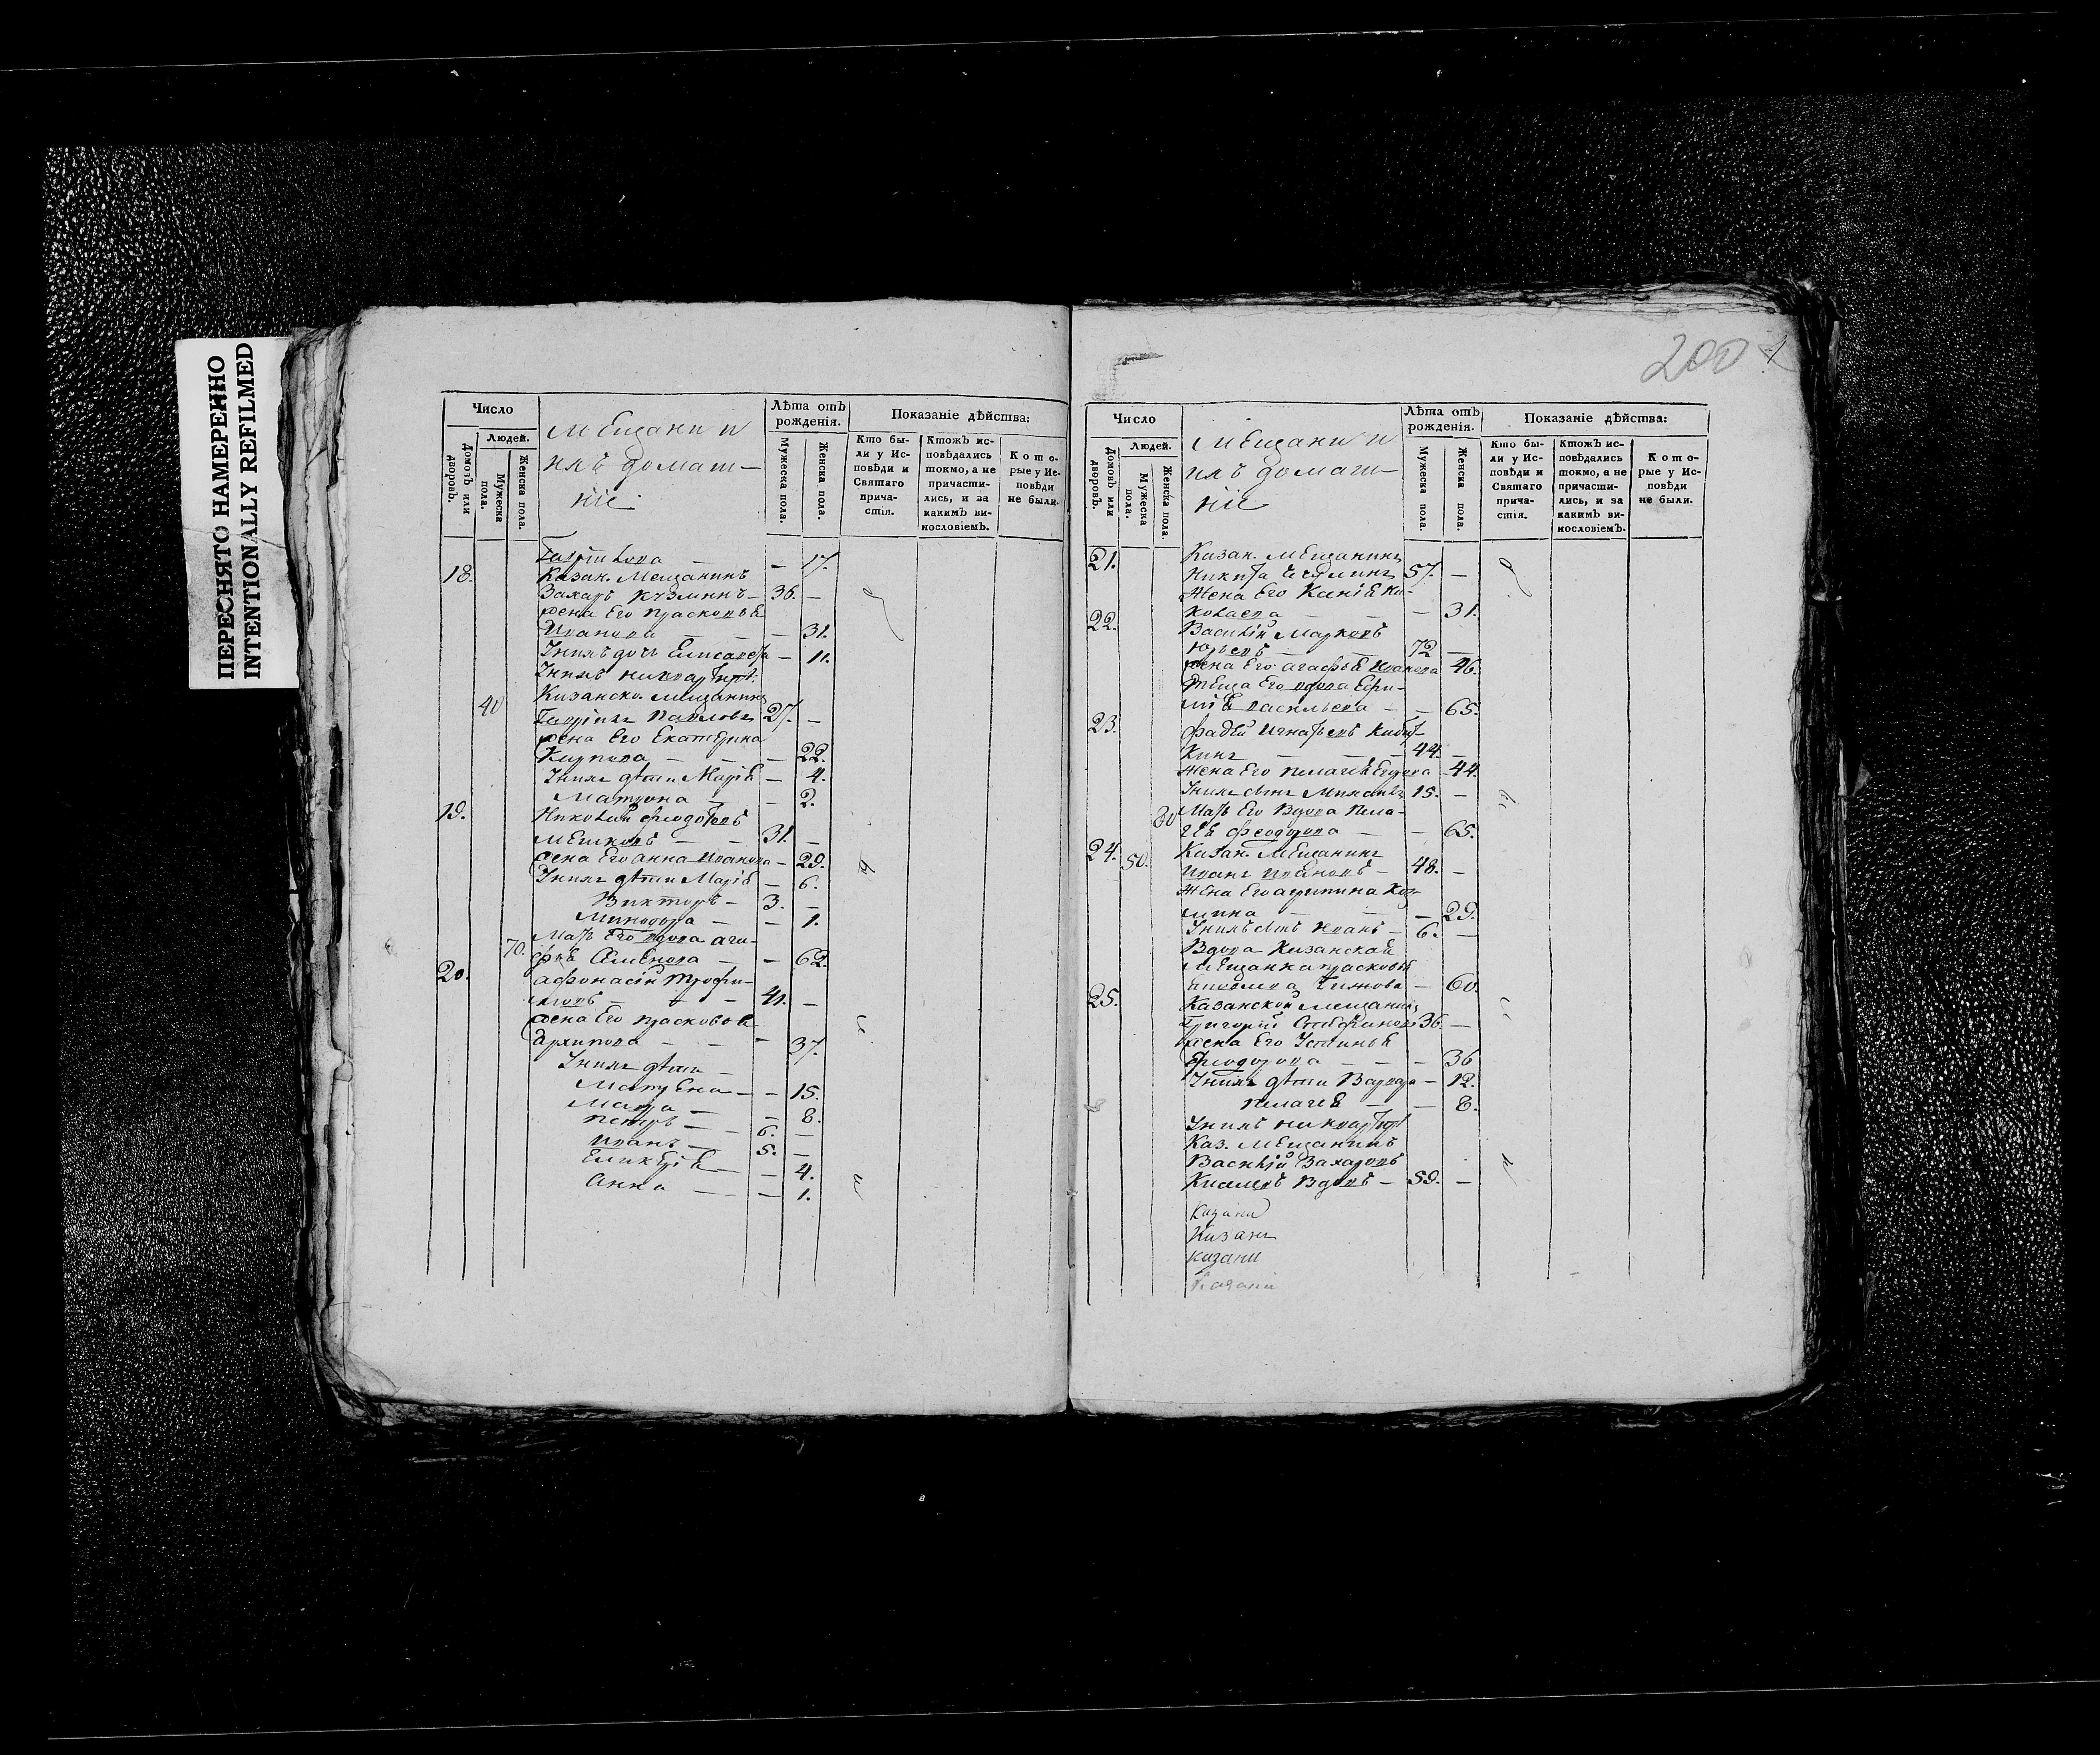 ПЕРЕСНЯТО НАМЕРЕННО
INTENTIONALLY REFILMED
Число
Людей.
Домовъ или дворовъ.
Мужеска пола.
Женска пола.
Мещане и
ихъ домаш-
ніе
Лѣта отъ рождения.
Мужеска пола.
Женска пола.
Показаніе дѣйства:
Кто бы-
ли у Ис-
повѣди и
Святаго
прича-
стія.
Ктожъ ис-
повѣдались
токмо, а не
причасти-
лись, и за
какимъ ви-
нословіемъ.
Кото-
рые у Ис-
повѣди
не были.
— 17.
18. Казан. Мещанинъ
Захаръ Кузминъ — 36. —
жена Его Прасковья
Иванова — — — 31.
У нихъ дочь Елисавета — 11.
У нихъ на квартирѣ
40 Казанско. Мещанинъ
Павловъ 27. —
жена Его Екатерина
Карпова — — — 22.
У нихъ дѣти Марія — 4.
Матрона — — 2.
19. Николай Феодотовъ
Мешковъ — — 31. —
жена Его Анна Иванова — 29.
У нихъ дѣти Марія — 6.
Викторъ — 3. —
Минодора — — 1.
Мать Его вдова Ага-
70. фья Семенова — — 62.
20. Афонасій Трофи-
мовъ — — — 41. —
жена Его Прасковья
Архипова — — — 37.
У нихъ дѣти —
Матрена — — 15.
— — 8.
Петръ — — 6. —
Иванъ — 5. —
— — 4.
Анна — — — 1.
200
Число
Людей.
Домовъ или дворовъ.
Мужеска пола.
Женска пола.
Мещане и
ихъ домаш-
ніе
Лѣта отъ рождения.
Мужеска пола.
Женска пола.
Показаніе дѣйства:
Кто бы-
ли у Ис-
повѣди и
Святаго
прича-
стія.
Ктожъ ис-
повѣдались
токмо, а не
причасти-
лись, и за
какимъ ви-
нословіемъ.
Кото-
рые у Ис-
повѣди
не были.
21. Казан. Мещанинъ
Никита 57. —
Жена Его Ксенія Ни-
колаева — — — 31.
22. Василій Марковъ
Юрьевъ — — 72 —
жена Его Агафья Иванова 46.
Теща Его вдова Ефи-
мія Васильева — — 65.
23. Фадей Игнатьевъ
кинъ — — — 44. —
Жена Его Пелагея — 44.
У нихъ сынъ Михаилъ 15. —
80 Мать Его Вдова Пела-
гея Феодорова — — 65.
24. 50. Казан. Мещанинъ
Иванъ Ивановъ — 48. —
Жена Его Агрипина Коз-
мина — — — 29.
У нихъ сынъ Иванъ — 6. —
Вдова Казанская
Мещанка Прасковья
— 60.
25. Казанской Мещанинъ
Григорій 36. —
жена Его Устинья
Феодорова — — — 36
У нихъ дѣти Варвара — 12.
Пелагея — — 8.
У нихъ на квартирѣ
Каз. Мещанинъ
Василій Захаровъ
Вдовъ — 59. —
Казани
Казань
казани
Казани